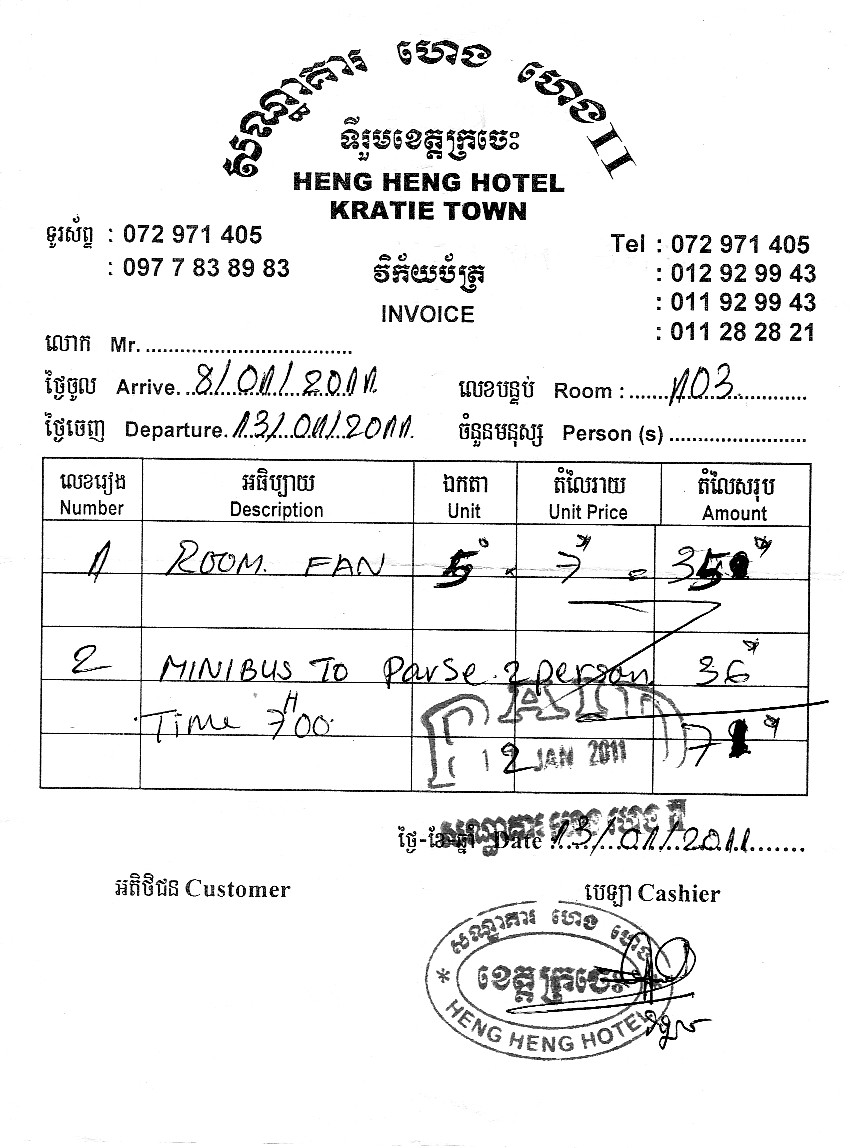 សណ្ឋាគារ ហេង ហេង II
ទីរួមខេត្តក្រចេះ
HENG HENG HOTEL
KRATIE TOWN
ទូរស័ព្ទ : 072 971 405
: 097 7 83 89 83
Tel : 072 971 405
: 012 92 99 43
: 011 92 99 43
: 011 28 28 21
វិក័យប័ត្រ
INVOICE
លោក Mr. ....................................
ថ្ងៃចូល Arrive. 8/01/2011 លេខបន្ទប់ Room : 103
ថ្ងៃចេញ Departure. 13/01/2011 ចំនួនមនុស្ស Person (s) ........................
លេខរៀង អធិប្បាយ ឯកតា តំលៃរាយ តំលៃសរុប
Number Description Unit Unit Price Amount
1 ROOM FAN 5 × 7$ = 35$
2 MINIBUS TO Parse 2 person 36$
Time 7H00
PAID
12 JAN 2011
71$
សណ្ឋាគារ ហេង ហេង II
ថ្ងៃ-ខែ-ឆ្នាំ Date : 13/01/2011
អតិថិជន Customer បេឡា Cashier
សណ្ឋាគារ ហេង ហេង
ខេត្តក្រចេះ
* HENG HENG HOTEL